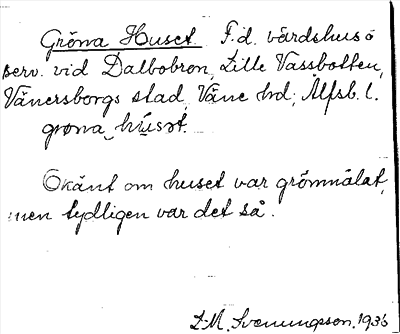 Gröna Huset F.d. värdshus o
serv. vid Dalbobron, Lille Vassbotten,
Vänersborgs stad, Väne hd; Älfsb. l.
grøna, húsət.
Okänt om huset var grönmålat,
men tydligen var det så.
L-M. Svenungsson. 1936